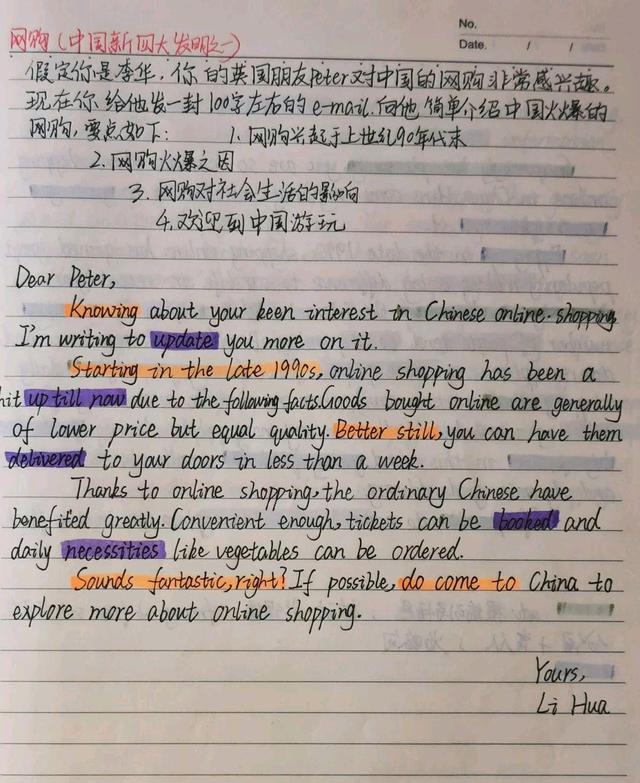 No.
Date. / /
网购(中国新四大发明之一)
假定你是李华,你的英国朋友Peter对中国的网购非常感兴趣。
现在你给他发一封100字左右的e-mail,向他简单介绍中国火爆的
网购,要点如下: 1. 网购兴起于上世纪90年代末
2. 网购火爆之因
3. 网购对社会生活的影响
4. 欢迎到中国游玩
Dear Peter,
Knowing about your keen interest in Chinese online-shopping
I'm writing to update you more on it.
Starting in the late 1990s, online shopping has been a
hit up till now due to the following facts. Goods bought online are generally
of lower price but equal quality. Better still, you can have them
delivered to your doors in less than a week.
Thanks to online shopping, the ordinary Chinese have
benefited greatly. Convenient enough, tickets can be booked and
daily necessities like vegetables can be ordered.
Sounds fantastic, right? If possible, do come to China to
explore more about online shopping.
Yours,
Li Hua